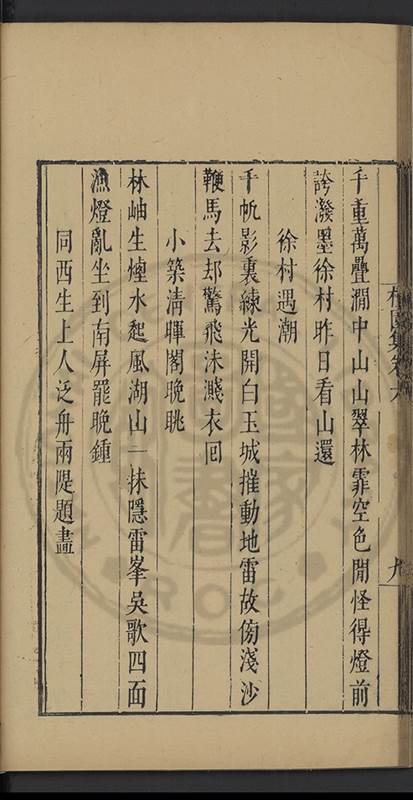 千重萬疊澗中山山翠林霏空色閒怪得燈前
誇潑墨徐村昨日看山還
徐村遇潮
千帆影裏練光開白玉城摧動地雷故傍淺沙
鞭馬去却驚飛沫濺衣回
小築清暉閣晚眺
林岫生煙水起風湖山一抹隱雷峯吳歌四面
漁燈亂坐到南屏罷晚鍾
同西生上人泛舟兩隄題畫
集卷六
九